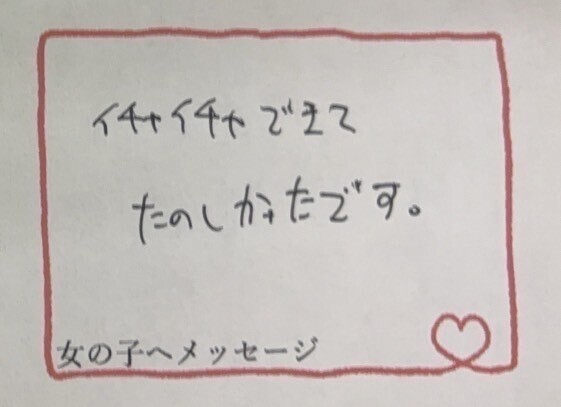 イチャイチャできて
たのしかったです。
女の子へメッセージ